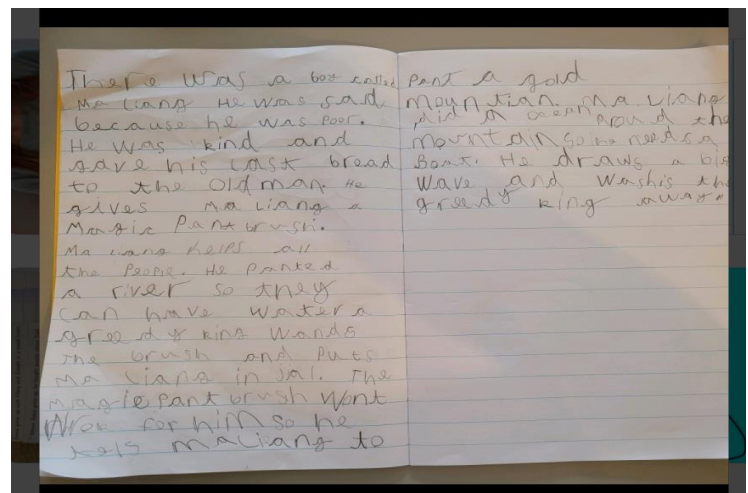 There was a boy called
Ma Liang He was sad
because he was Poor.
He was kind and
gave his last bread
to the old man. He
gives Ma Liang a
Magic Pant brush.
Ma Liang helps all
the People. He Panted
a river so they
can have water a
greedy king wands
The brush and Puts
Ma Liang in Jal. The
magic Pant brush wont
Wrok for him so he
tels maliang to
Pant a gold
mountian. Ma Liang
did a ocean around the
mountain so he needs a
Boat. He draws a big
wave and washis the
greedy king away.